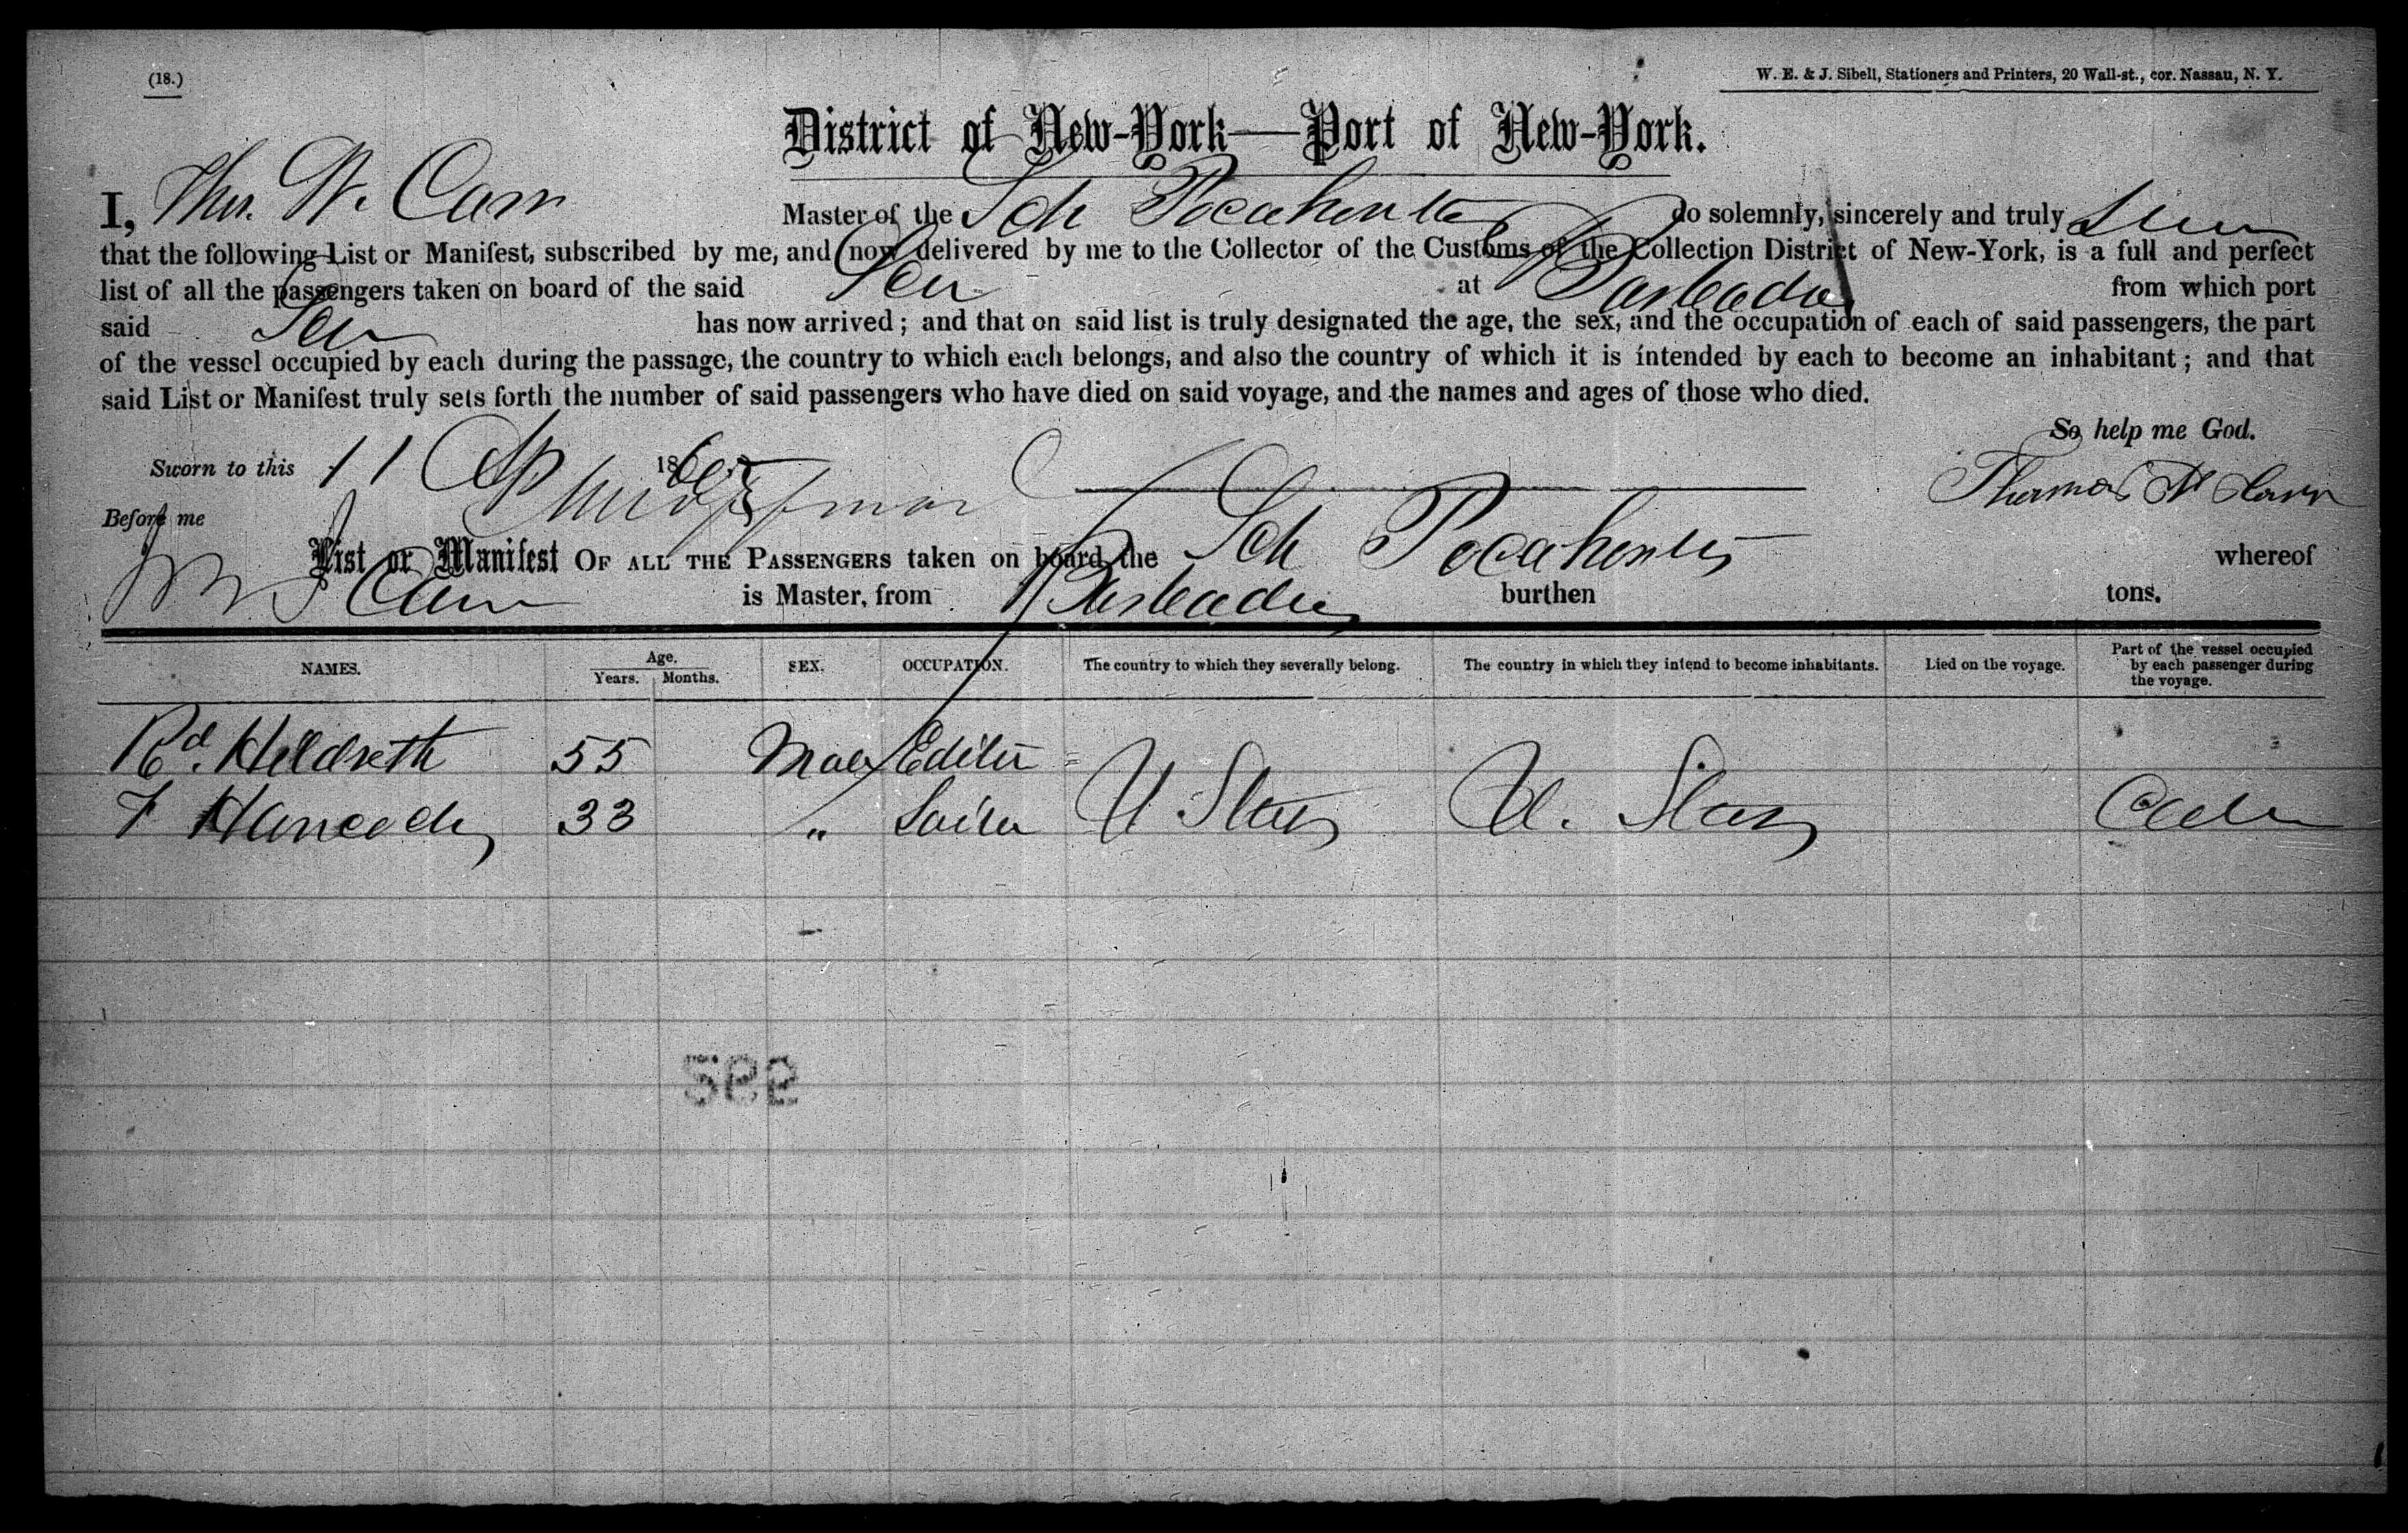 (18.)
W. E. & J. Sibell, Stationers and Printers, 20 Wall-st., cor. Nassau, N. Y.
District of New-York—Port of New-York.
I, Thos. W. Carr Master of the Sch Pocahontas do solemnly, sincerely and truly
that the following List or Manifest, subscribed by me, and now delivered by me to the Collector of the Customs of the Collection District of New-York, is a full and perfect
list of all the passengers taken on board of the said Sch at Barbadoes from which port
said Sch has now arrived; and that on said list is truly designated the age, the sex, and the occupation of each of said passengers, the part
of the vessel occupied by each during the passage, the country to which each belongs, and also the country of which it is intended by each to become an inhabitant; and that
said List or Manifest truly sets forth the number of said passengers who have died on said voyage, and the names and ages of those who died.
So help me God.
Sworn to this 11 Ap 186 Thomas W Carr
Before me
List or Manifest OF ALL THE PASSENGERS taken on board the Sch Pocahontas whereof
Carr is Master, from Barbadoes burthen tons.
NAMES. Age. Years. Months. SEX. OCCUPATION. The country to which they severally belong. The country in which they intend to become inhabitants. Lied on the voyage. Part of the vessel occupied by each passenger during the voyage.
Rd. Hildreth 55 Male Editor
F 33 " Sailor U States U. States
592